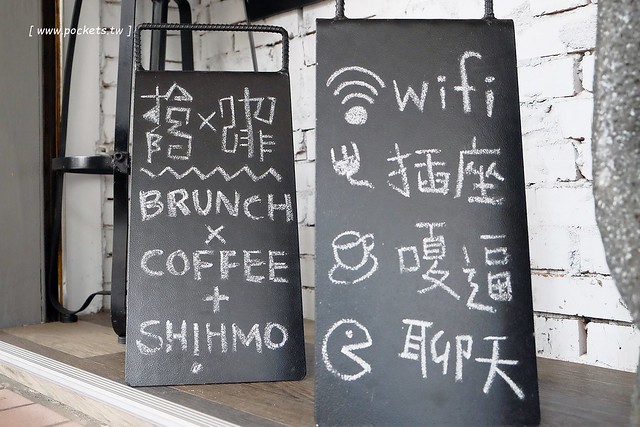 [ www.pockets.tw ]
擔×咖啡
BRUNCH
×
COFFEE
+
SHIHMO
wifi
插座
嘎逼
聊天